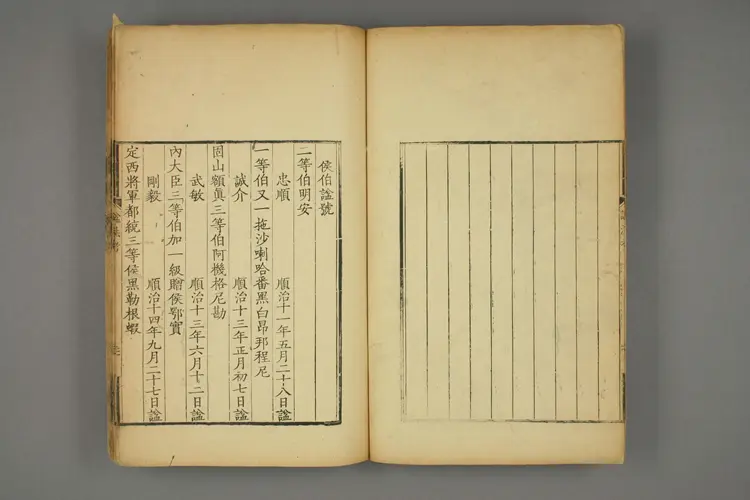 侯伯諡號
二等伯明安
忠順 順治十一年五月二十八日諡
一等伯又一拖沙喇哈番黑白昂邦程尼
誠介 順治十三年正月初七日諡
固山額真三等伯阿機格尼勘
武敏 順治十三年六月十二日諡
內大臣三等伯加一級贈侯鄂寳
剛毅 順治十四年九月二十七日諡
定西將軍都統三等侯黑勒根蝦